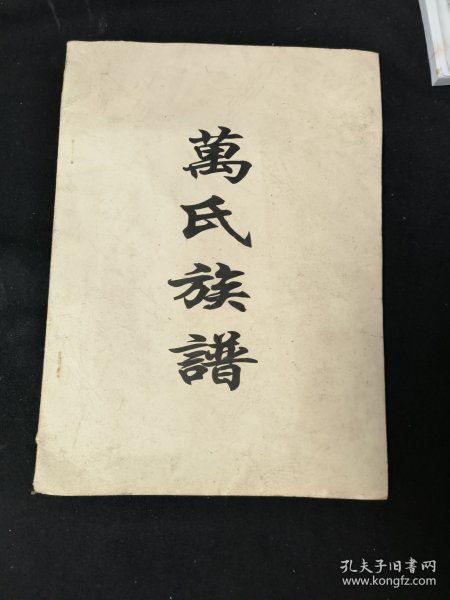 萬氏族譜
孔夫子旧书网
www.kongfz.com